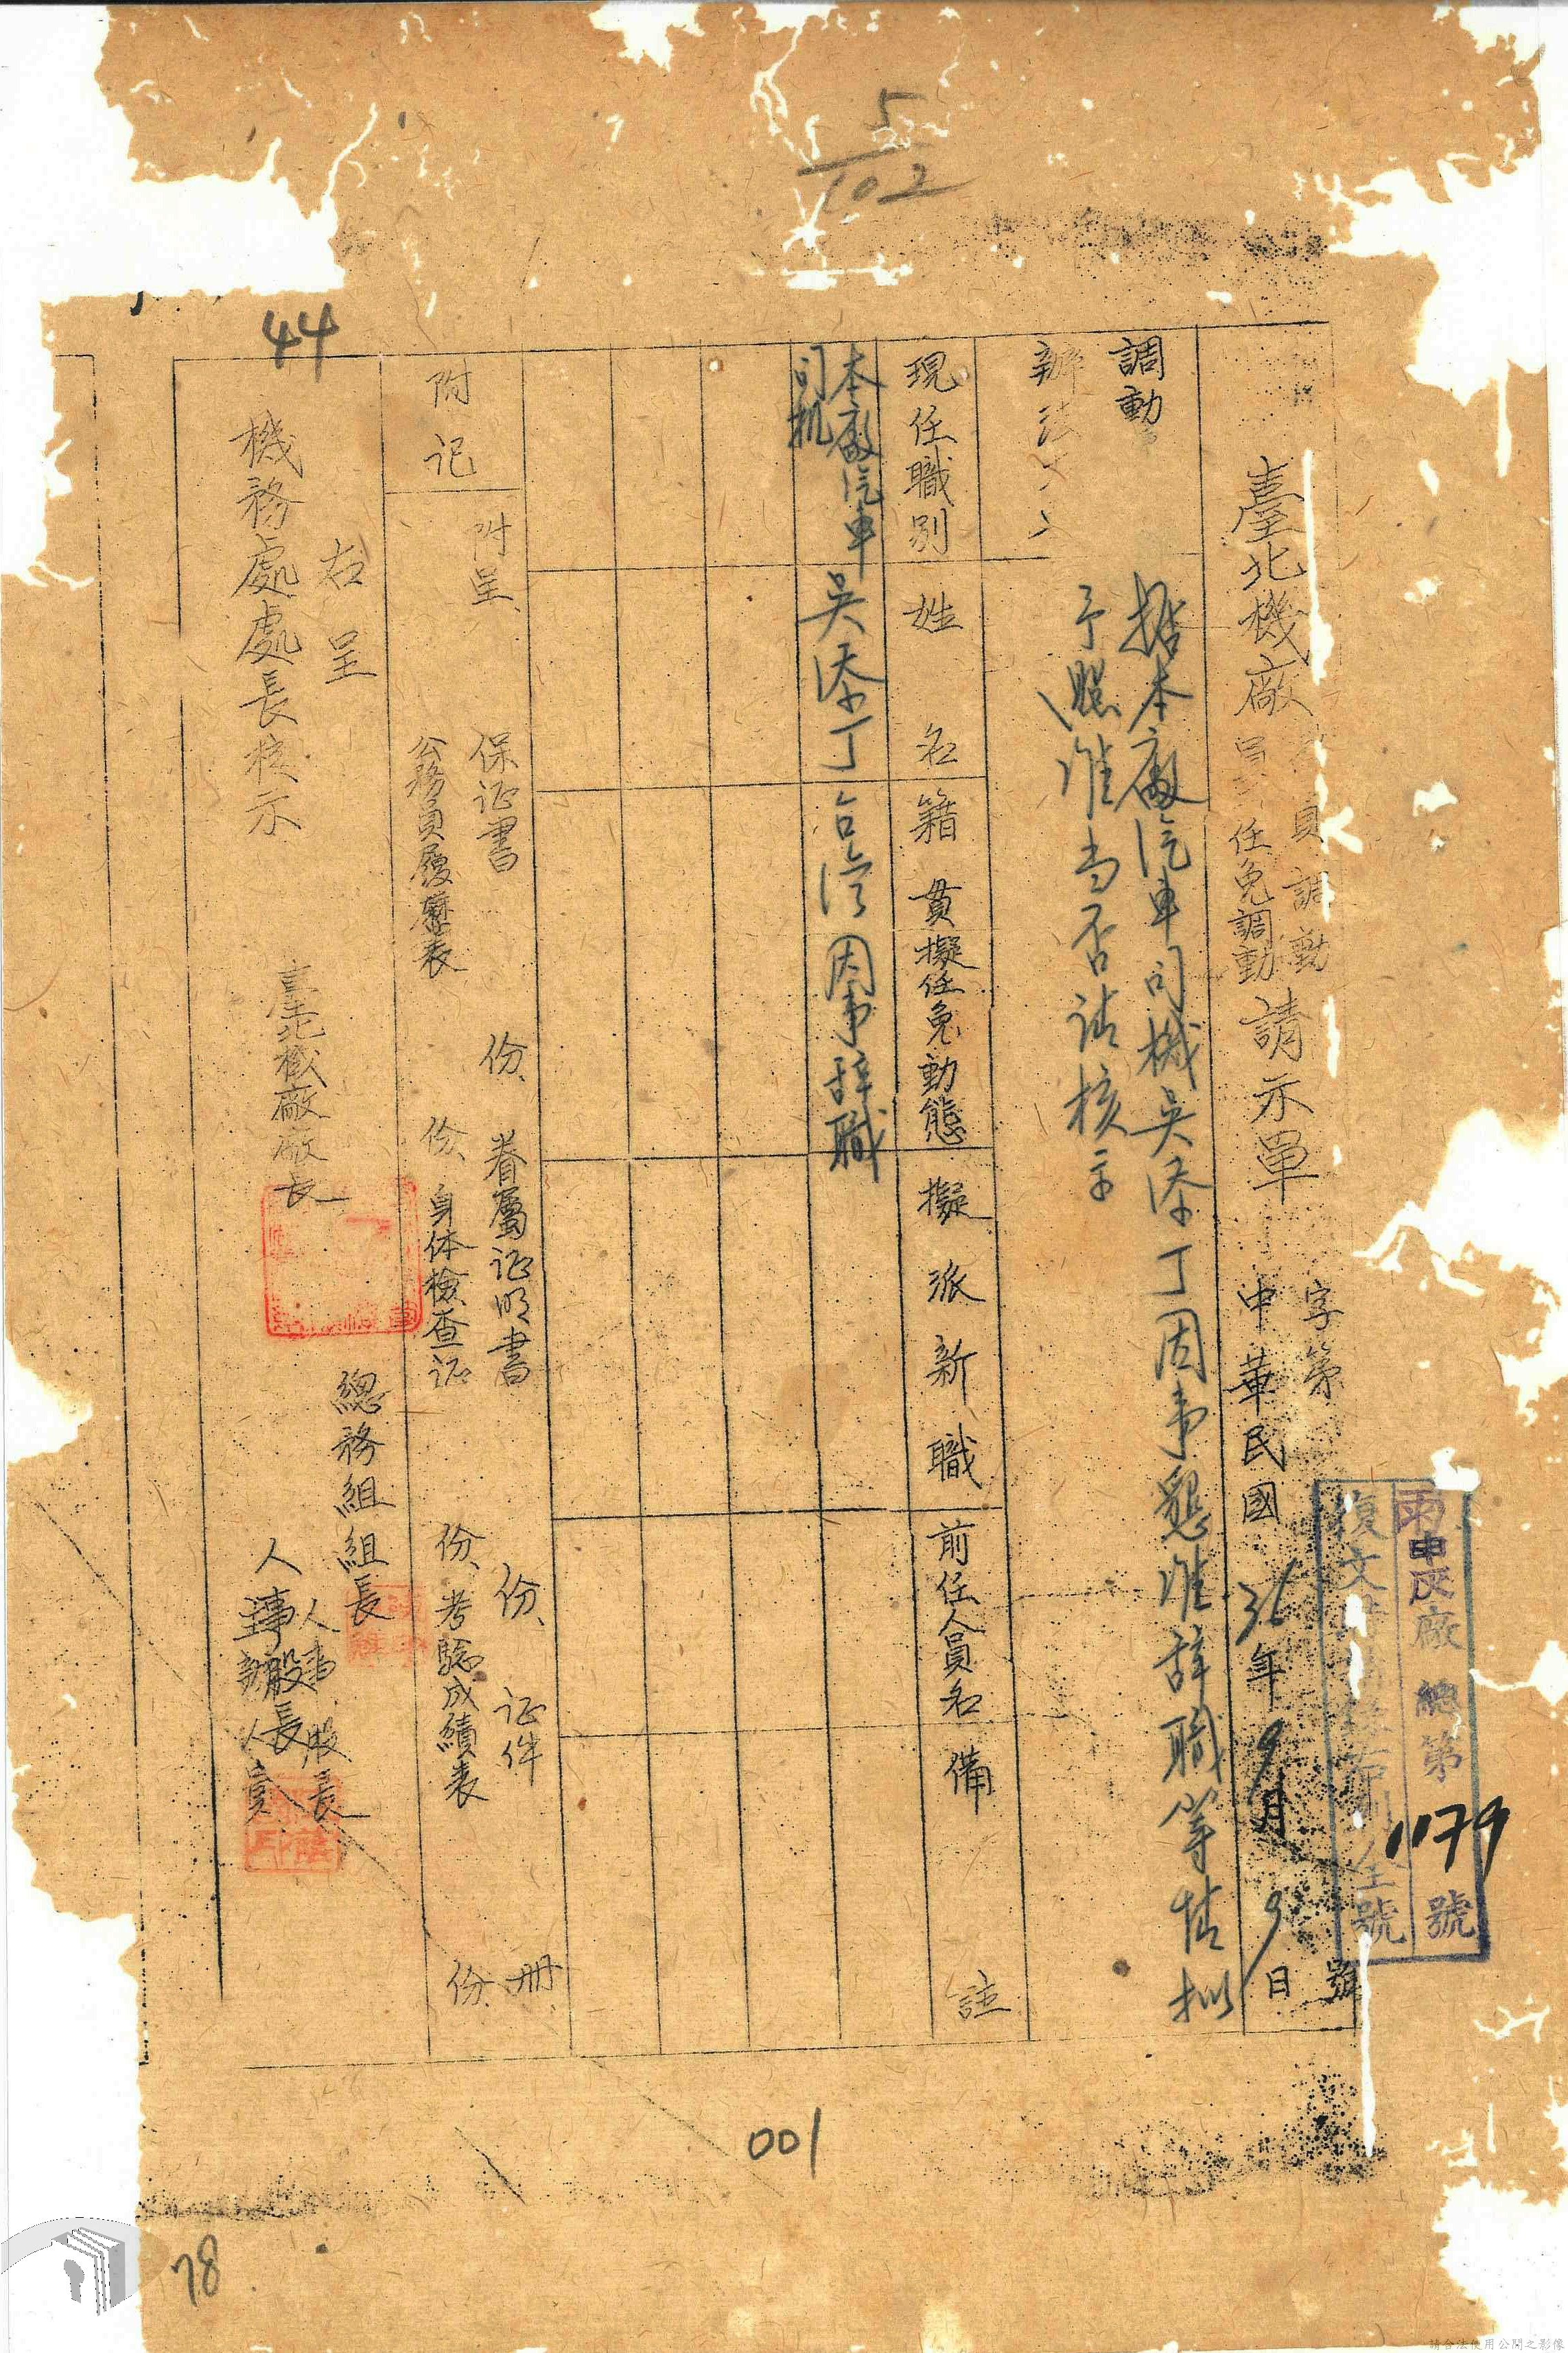 5
102
44
雨申灰廠總第1179號
復文時請
號
字第
號
臺北機廠
員
任免調動
員調動
請示單
中華民國36年9月9日
調動
辦法
據本廠汽車司機吳添丁因事懇准辞職等情拟
予照准当否請核示
現任職別
姓名
籍貫
擬任免動態
擬派新職
前任人員名
備註
本廠汽車
司机
吳添丁
台湾
因事辞職
附記
附呈、
保证書
份、
眷屬证明書
份、
证件
册
公務員履歷表
份、
身体檢查证
份、
考驗成績表
份、
右呈
機務處處長核示
臺北機廠廠長
總務組組長
人事股長
人事股長
主辦人員
001
78
請合法使用公開之影像